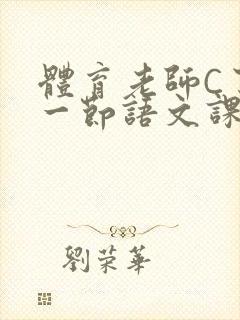 體育老師C
一節語文課
劉榮華